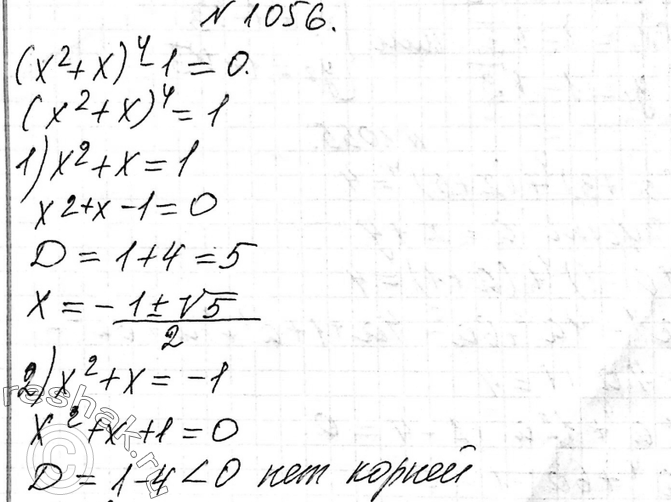 № 1056.
(x²+x)⁴-1=0.
(x²+x)⁴=1
1) x²+x=1
x²+x-1=0
D=1+4=5
x=-1±√5
2
2) x²+x=-1
x²+x+1=0
D=1-4<0 нет корней
reshak.ru